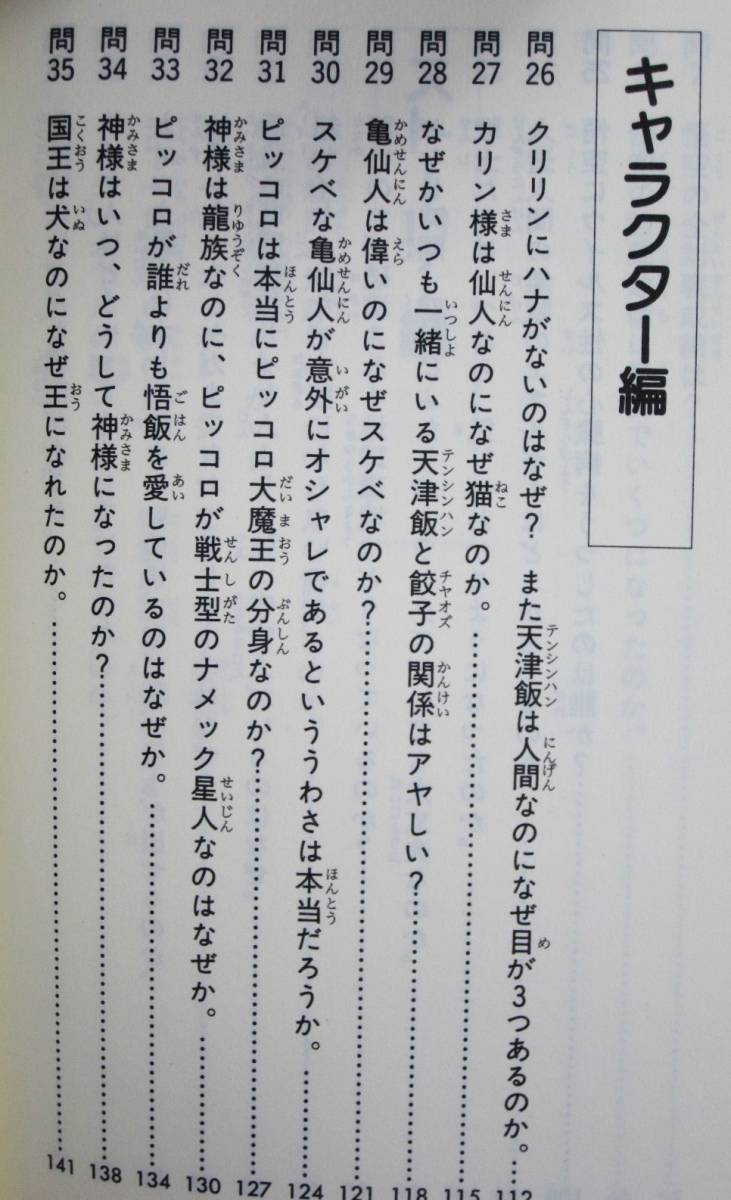 キャラクター編
問26 クリリンにハナがないのはなぜ？ また天津飯は人間なのになぜ目が3つあるのか。……112
問27 カリン様は仙人なのになぜ猫なのか。……115
問28 なぜかいつも一緒にいる天津飯と餃子の関係はアヤしい？……118
問29 亀仙人は偉いのになぜスケベなのか？……121
問30 スケベな亀仙人が意外にオシャレであるといううわさは本当だろうか。……124
問31 ピッコロは本当にピッコロ大魔王の分身なのか？……127
問32 神様は龍族なのに、ピッコロが戦士型のナメック星人なのはなぜか。……130
問33 ピッコロが誰よりも悟飯を愛しているのはなぜか。……134
問34 神様はいつ、どうして神様になったのか？……138
問35 国王は犬なのになぜ王になれたのか。……141